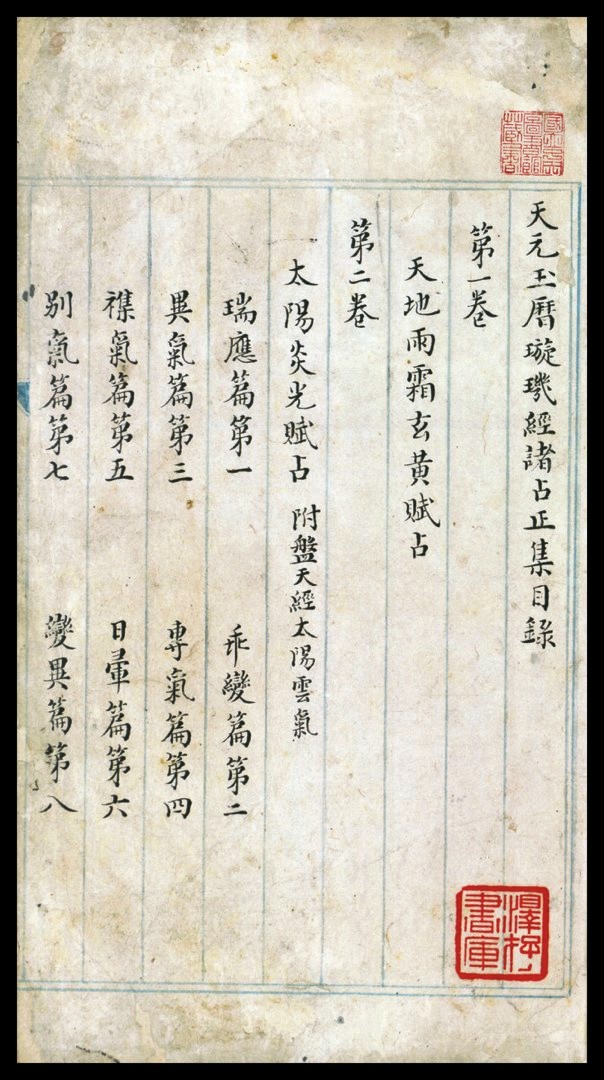 天元玉曆璇璣經諸占正集目錄
第一卷
天地雨霜玄黃賦占
第二卷
太陽炎光賦占 附盤天經太陽雲氣
瑞應篇第一 乖變篇第二
異氣篇第三 專氣篇第四
襍氣篇第五 日暈篇第六
別氣篇第七 變異篇第八
書庫